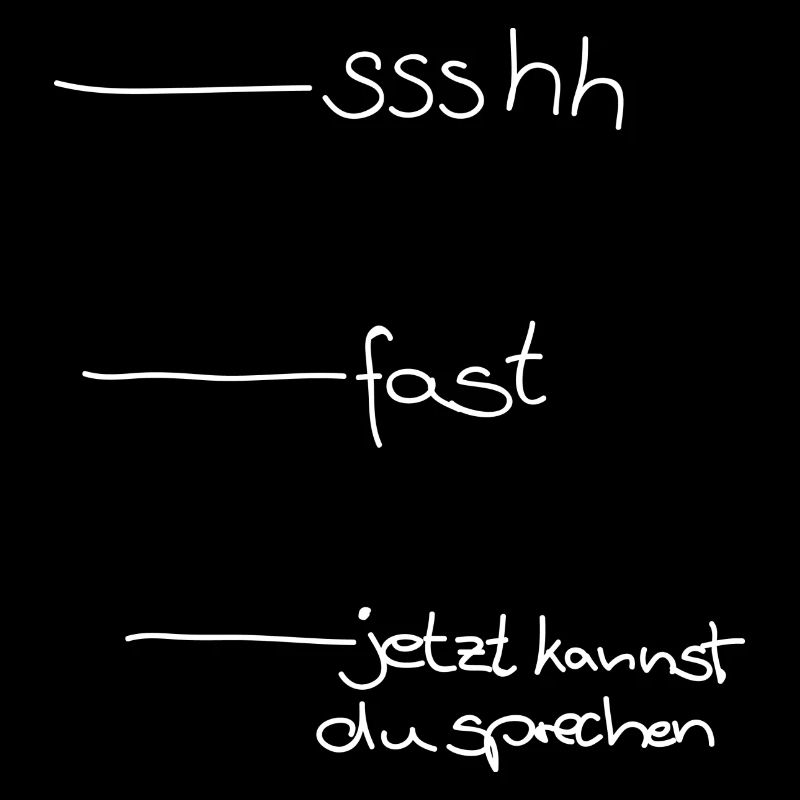 ssshh
fast
jetzt kannst
du sprechen